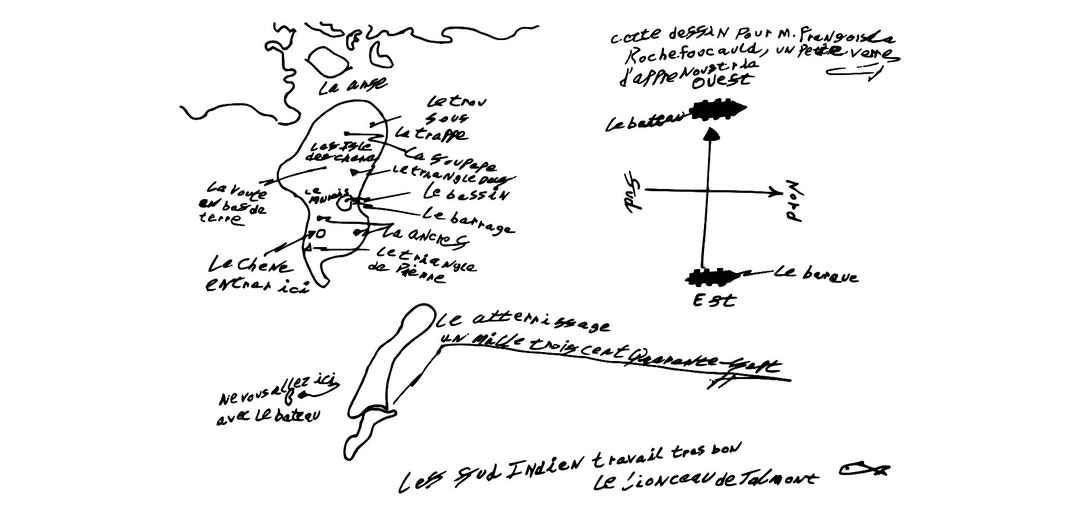 cette dessin pour m. François La
Rochefoucauld, un petite verre
d'appre Noustria
OUEST
La anse
Le trou
sous
La trappe
Les Isle
des chene
La soupape
Le triangle
Le bateau
La voute
en bas de
terre
Le
Marais
Le bassin
Le barrage
La ancres
Sud
Nord
Le Chêne
entrer ici
Le triangle
de Pierre
Le barque
Est
Le atterrissage
un mille trois cent Quarante-Sept
Ne vous allez ici
avec Le bateau
Less Sud Indien travail tres bon
Le Lionceau de Talmont